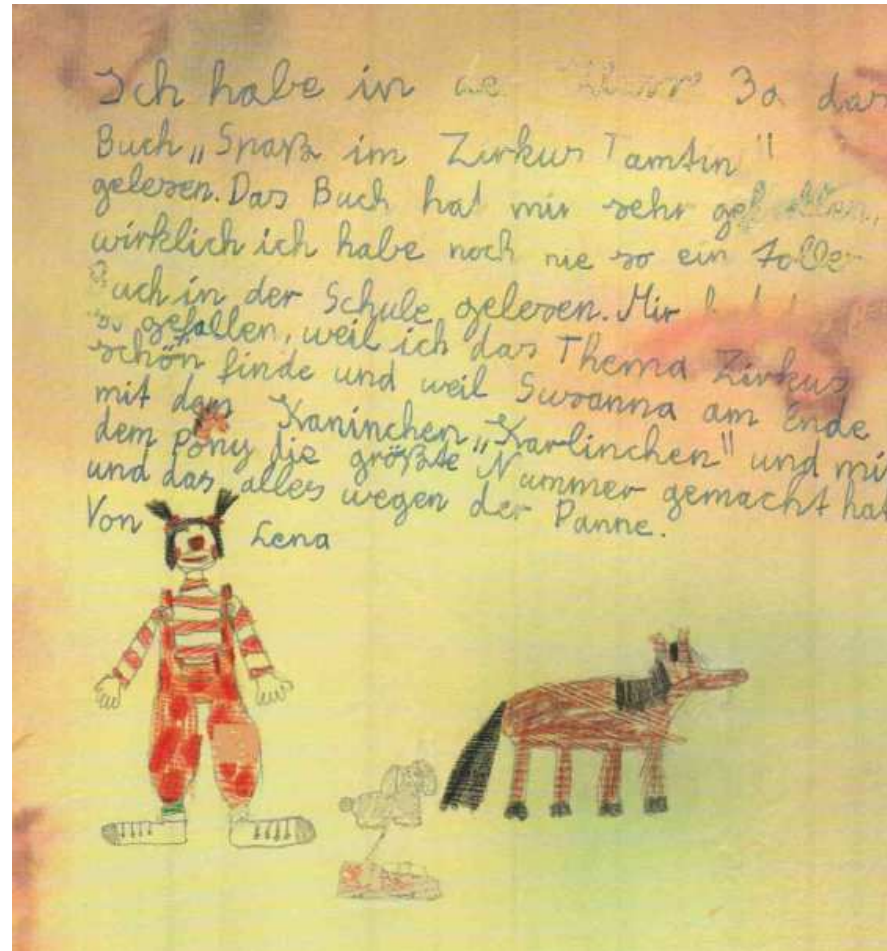 Ich habe in de Klasse 3a das
Buch „Spaß im Zirkus Tamtin"
gelesen. Das Buch hat mir sehr gefallen,
wirklich ich habe noch nie so ein tolles
Buch in der Schule gelesen. Mir
so gefallen, weil ich das Thema Zirkus
schön finde und weil Susanna am Ende
mit dem Kaninchen „Karlinchen" und mi
dem Pony die größte Nummer gemacht hat
und das alles wegen der Panne.
Von Lena